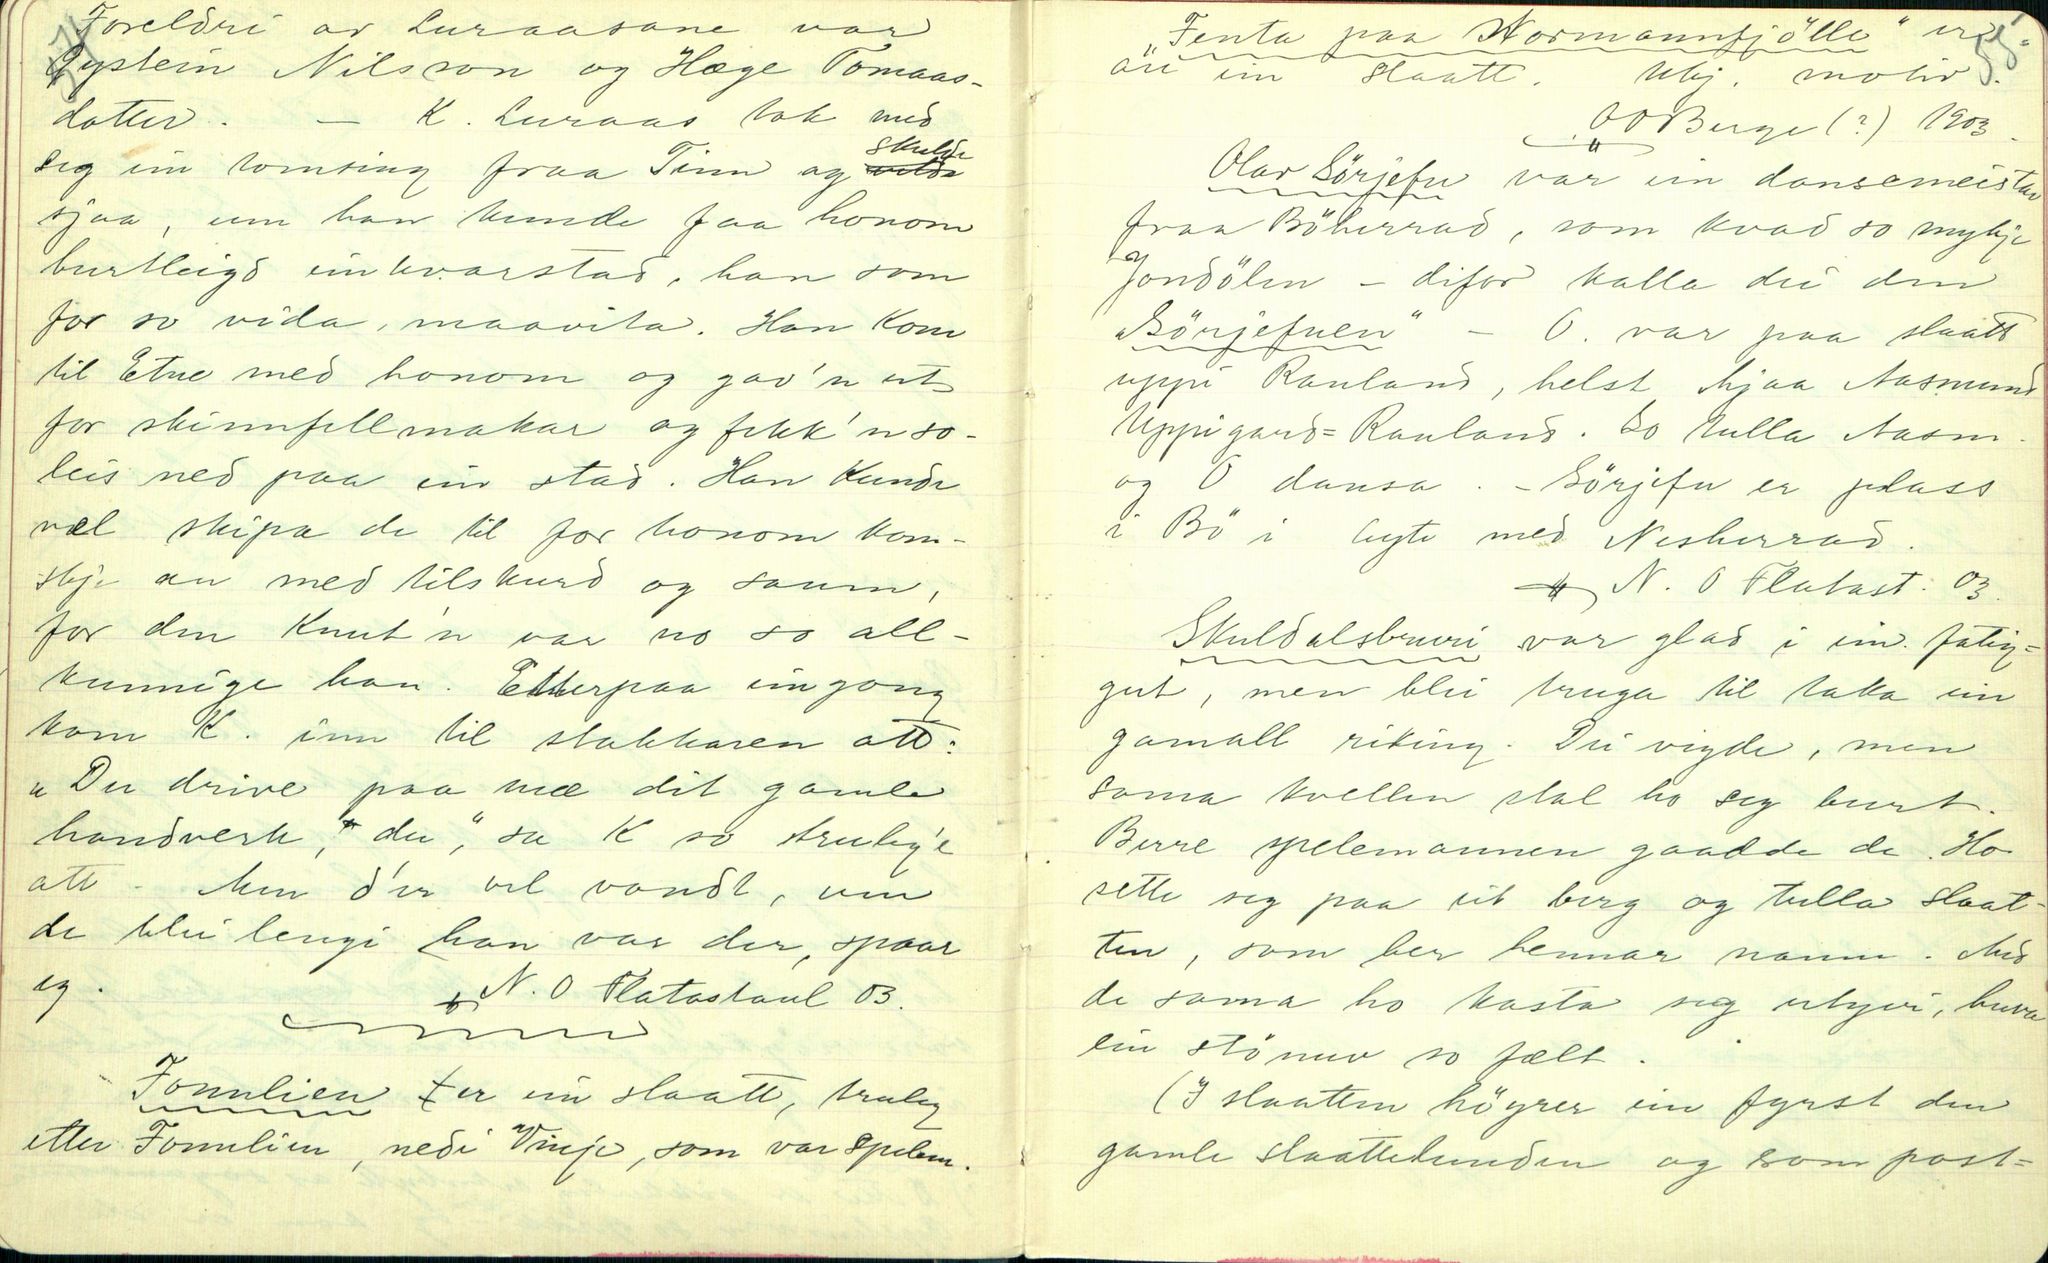 Foreldri av Luraasane var
Öystein Nilsson og Hæge Tomaas-
dotter. — K. Luraas tok med
seg ein tomsing fraa Tinn og skulde
sjaa, um han kunde faa honom
burtleigd einkvarstad, han som
for so vida, maavita. Han kom
til Etne med honom og gav'n ut
for skinnfellmakar og fekk'n so-
leis ned paa ein stad. Han kunde
vel skipa de til for honom kom-
skje au med tilskurd og saum,
for den Knut'n var no so all-
kunnige han. Etterpaa eingong
kom K. inn til stakkaren att:
„Du drive paa mæ dit gamle
handverk, du", sa K so truleg'e
att. Men d'er vel vondt, um
de blei lengi han var der, spaar
eg.
N. O Flatastaul 03.
Fonnlien er ein slaatt, truleg
etter Fonnlien, nedi Vinje, som var spelem.
55
„Fenta paa Normannfjölle" er
au ein slaatt. Ukj. motiv.
O O Berge (?) 1903.
Olav Sörjefn var ein dansemeistar
fraa Böherrad, som kvad so mykje
Jondölen – difor kalla dei den
„Sörjefnen" – O. var paa slaatt
uppi Rauland, helst hjaa Aasmund
Uppigard=Rauland. So tulla Aasm.
og O dansa. – Sörjefn er plass
i Bö i leyte med Nesherrad.
N. O Flatast. 03.
Skuldalsbruri var glad i ein fatig=
gut, men blei truga til taka ein
gamall riking. Dei vigde, men
soma kvellen stal ho seg burt.
Berre spelemannen gaadde de. Ho
sette seg paa eit berg og tulla slaat-
ten, som ber hennar namn. Med
de sama ho kasta seg utyvi, høvra
ein stönuv so fælt.
(I slaatten höyrer ein fyrst den
gamle slaattekunden og som post=